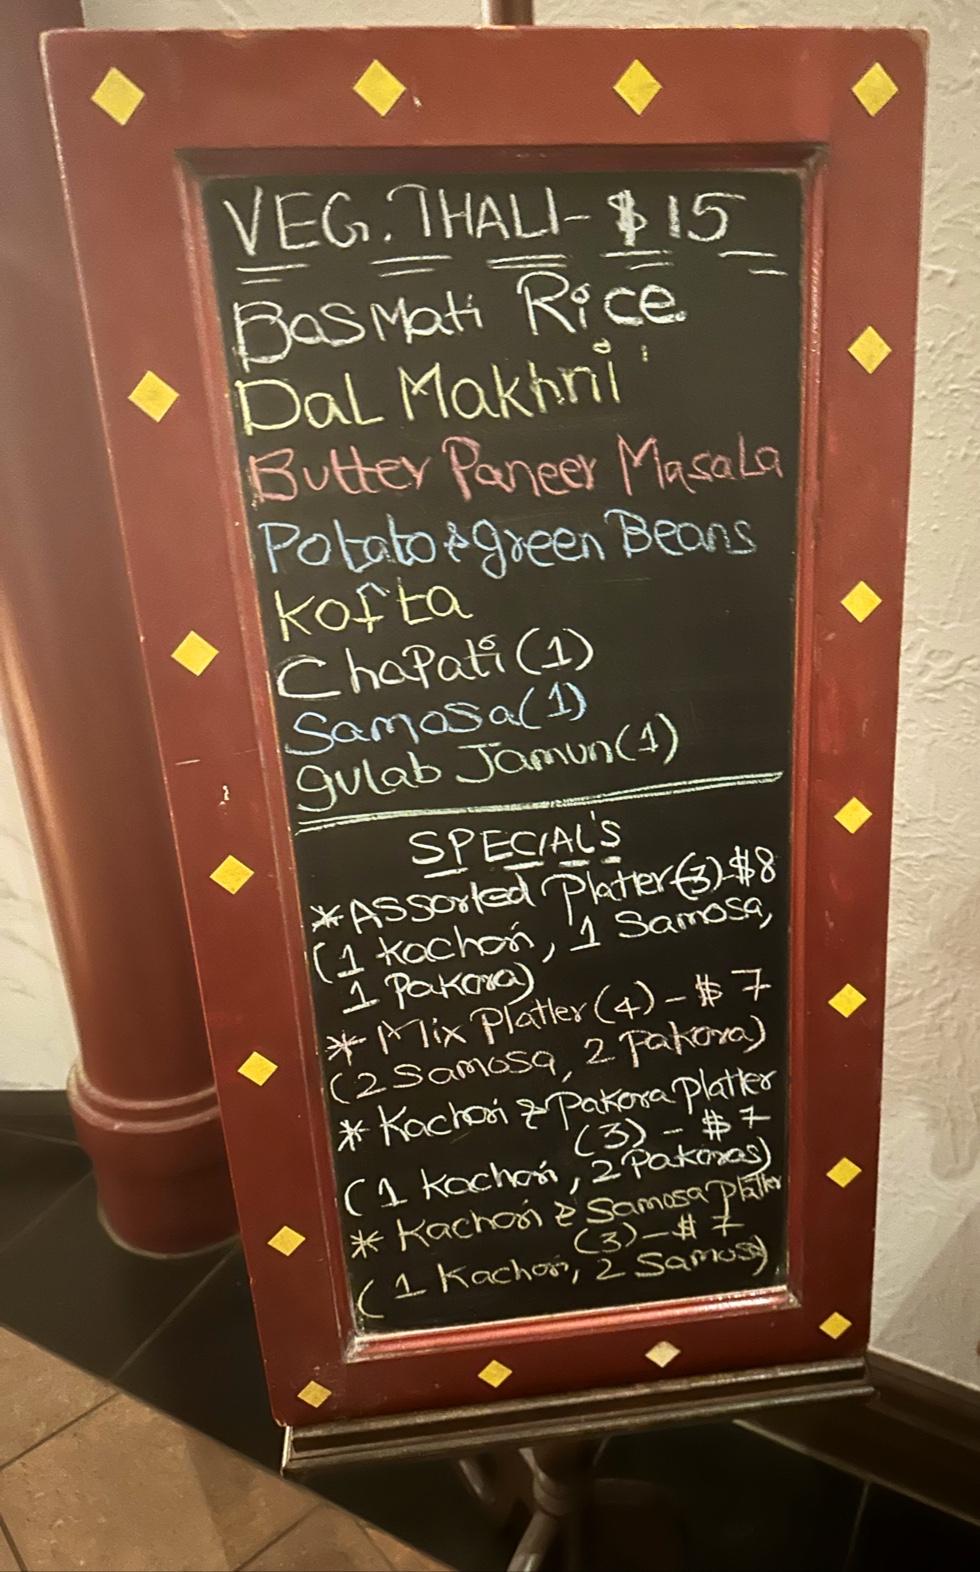 VEG. THALI - $15
Basmati Rice
Dal Makhni
Butter Paneer Masala
Potato & green Beans
Kofta
Chapati (1)
Samosa (1)
gulab Jamun (1)
SPECIAL'S
* Assorted Platter (3) - $8
(1 Kachori, 1 Samosa,
1 Pakora)
* Mix Platter (4) - $ 7
(2 Samosa, 2 Pakora)
* Kachori & Pakora Platter
(3) - $ 7
(1 Kachori, 2 Pakoras)
* Kachori & Samosa Platter
(3) - $ 7
(1 Kachori, 2 Samosa)